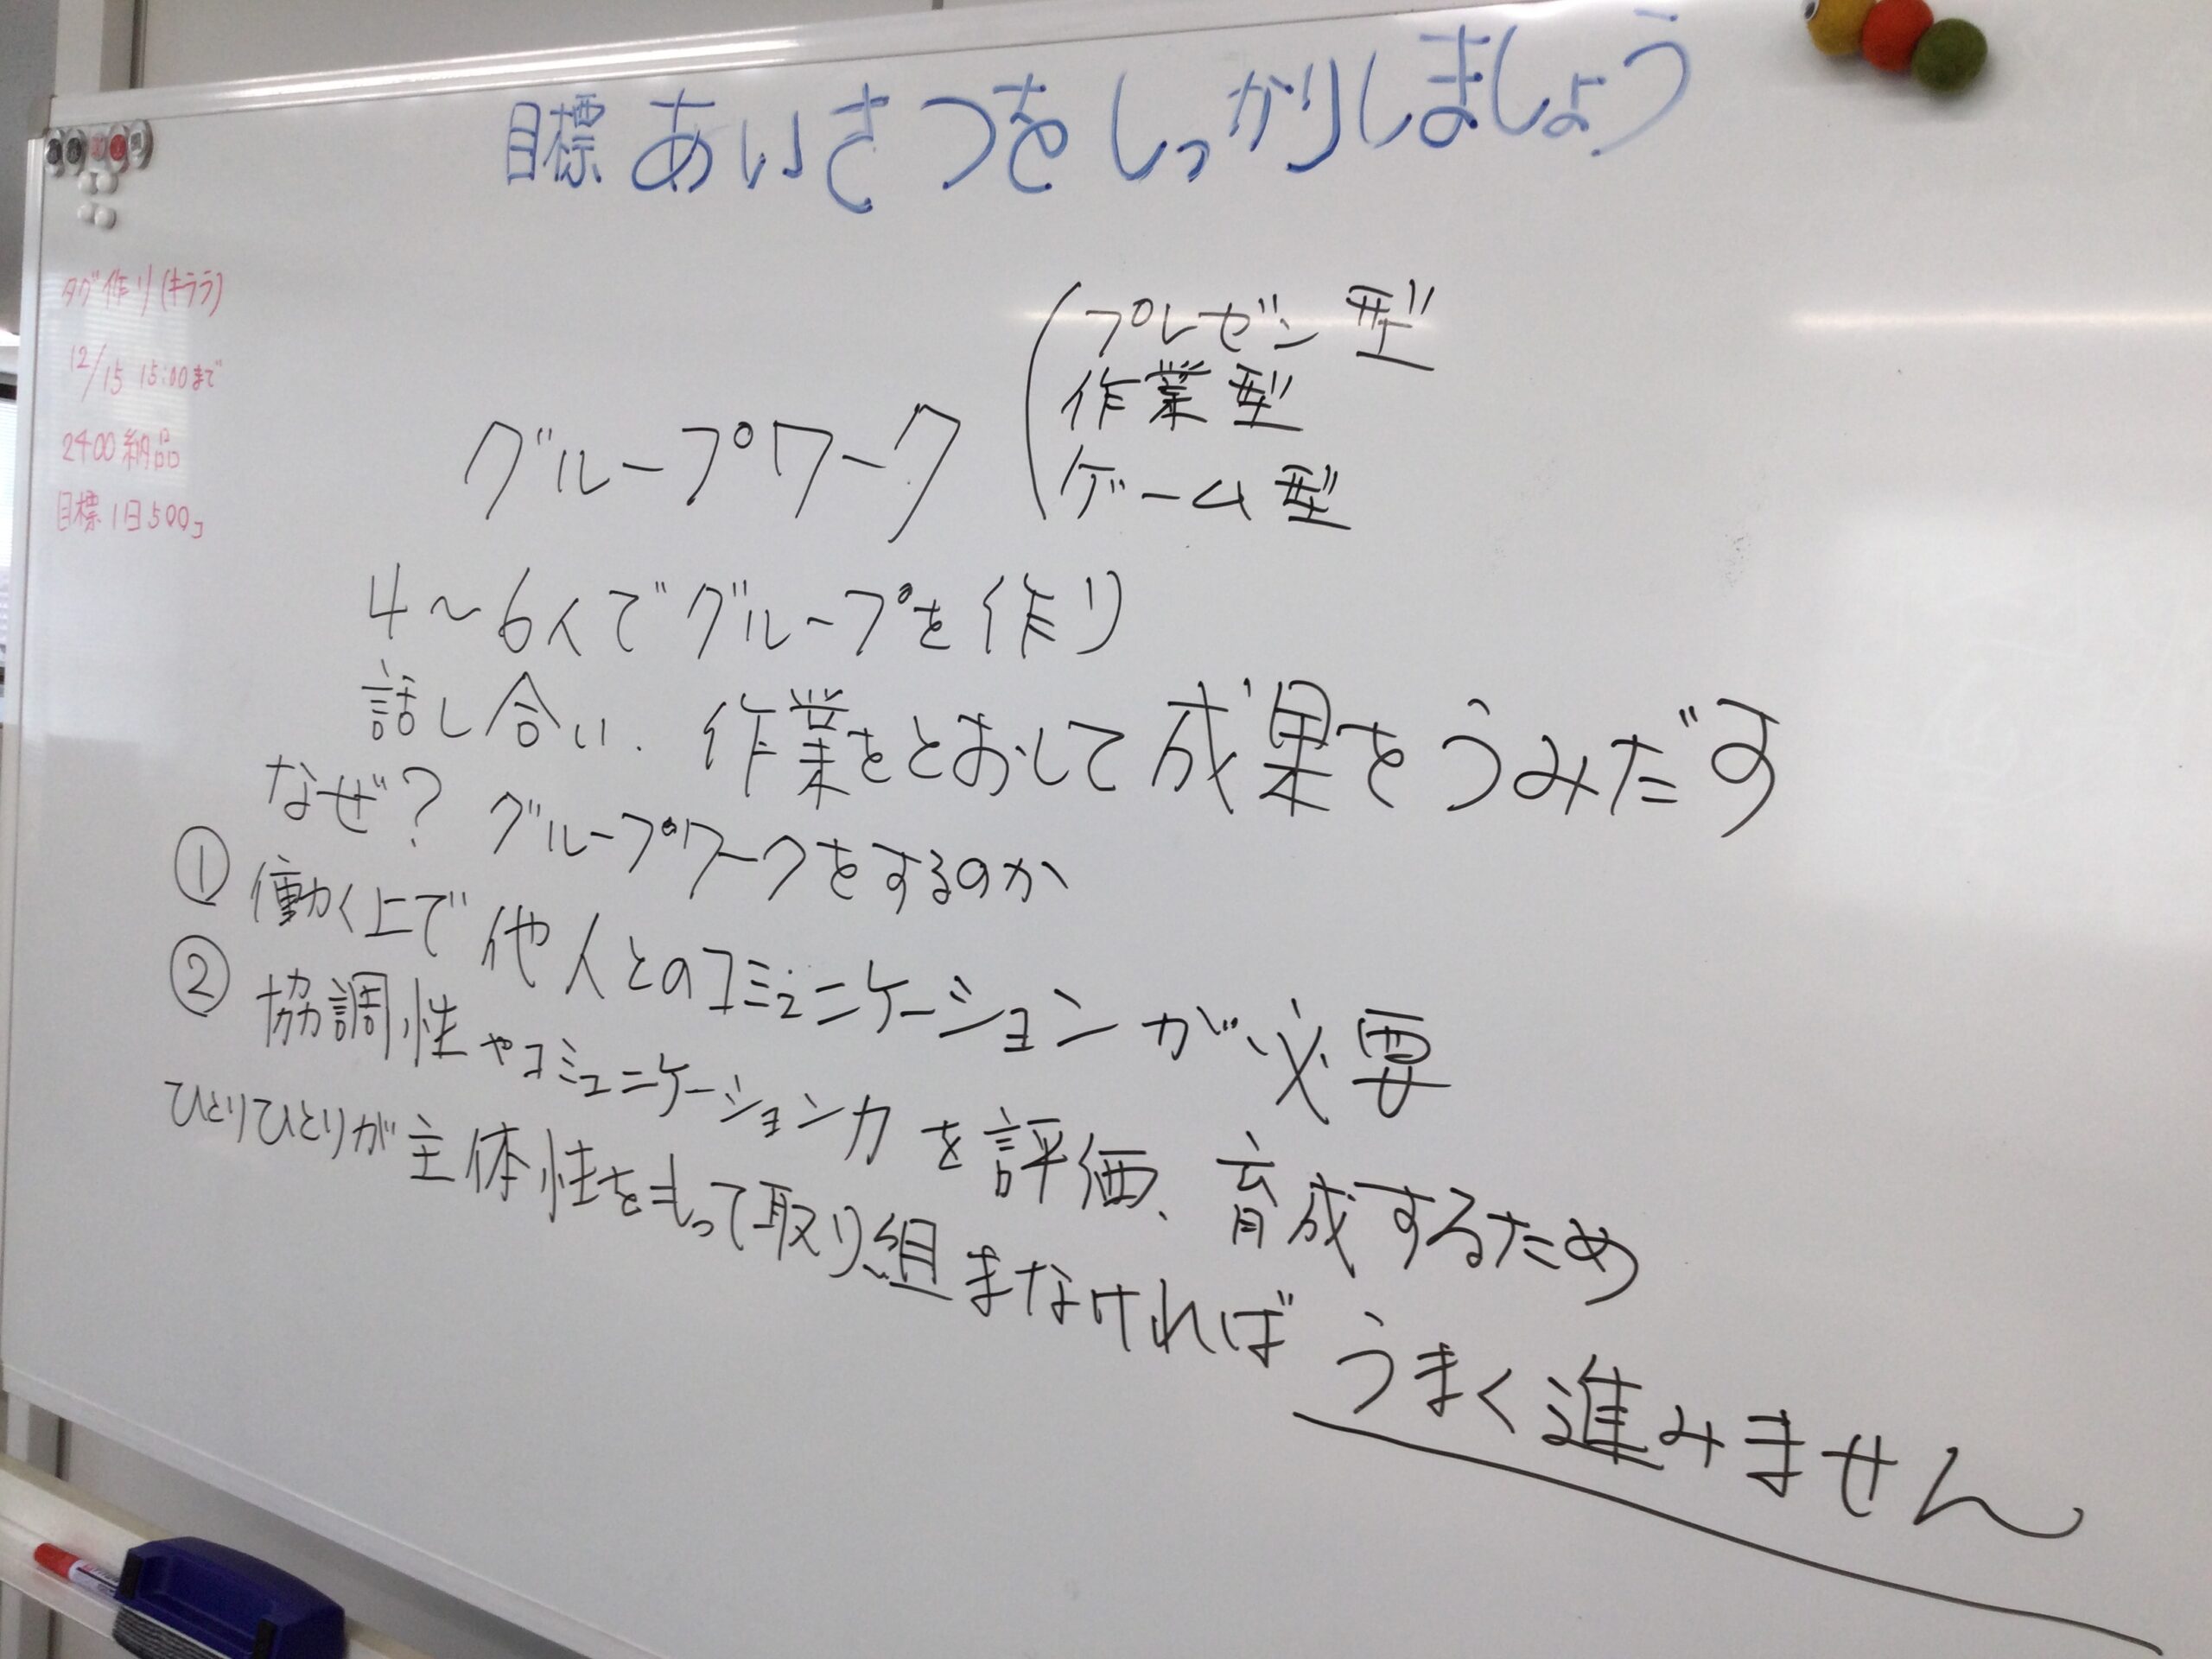 目標 あいさつをしっかりしましょう
タグ作り(キララ)
12/15 15:00まで
2400納品
目標1日500コ
グループワーク
プレゼン型
作業型
ゲーム型
4〜6人でグループを作り
話し合い、作業をとおして成果をうみだす
なぜ? グループワークをするのか
① 働く上で他人とのコミュニケーションが必要
② 協調性やコミュニケーション力を評価、育成するため
ひとりひとりが主体性をもって取り組まなければ うまく進みません